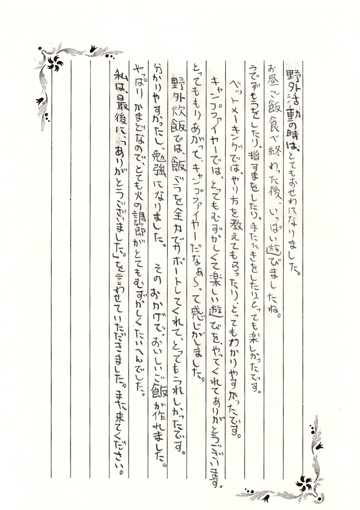 野外活動の時は、とてもおせわになりました。
お昼ご飯食べ終わった後、いっぱい遊びましたね。
うでずもうをしたり、指すまをしたり、手たたきをしたりとっても楽しかったです。
ベットメーキングでは、やり方を教えてもらったり、とってもわかりやすかったです。
キャンプファイヤーでは、とってもむずかしくて楽しい遊びを、やってくれてありがとうございます。
とってももりあがって、キャンプファイヤーだなぁ〜、って感じがしました。
野外炊飯では、飯ごうを全力でサポートしてくれて、とってもうれしかったです。
分かりやすかったし、勉強になりました。そのおかげで、おいしいご飯が作れました。
やっぱりかまどなので、とても火の調節がとてもむずかしくたいへんでした。
私は、最後に、「ありがとうございました。」を言わせていただきました。また来てください。